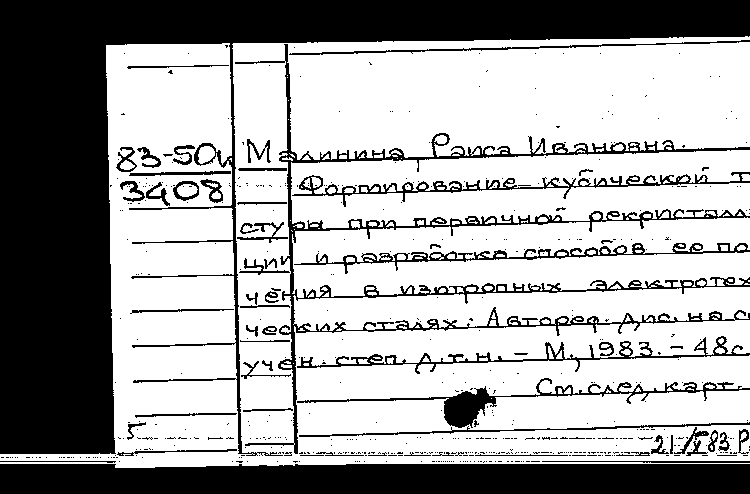 83-50и Малинина, Раиса Ивановна.
3408 Формирование кубической т
стуры при первичной рекристалл
ции и разработка способов ее по
чения в изотропных электротех
ческих сталях: Автореф. дис. на с
учен. степ. д.т.н. – М., 1983. – 48с
См. след. карт.
5
21/X 83 Р